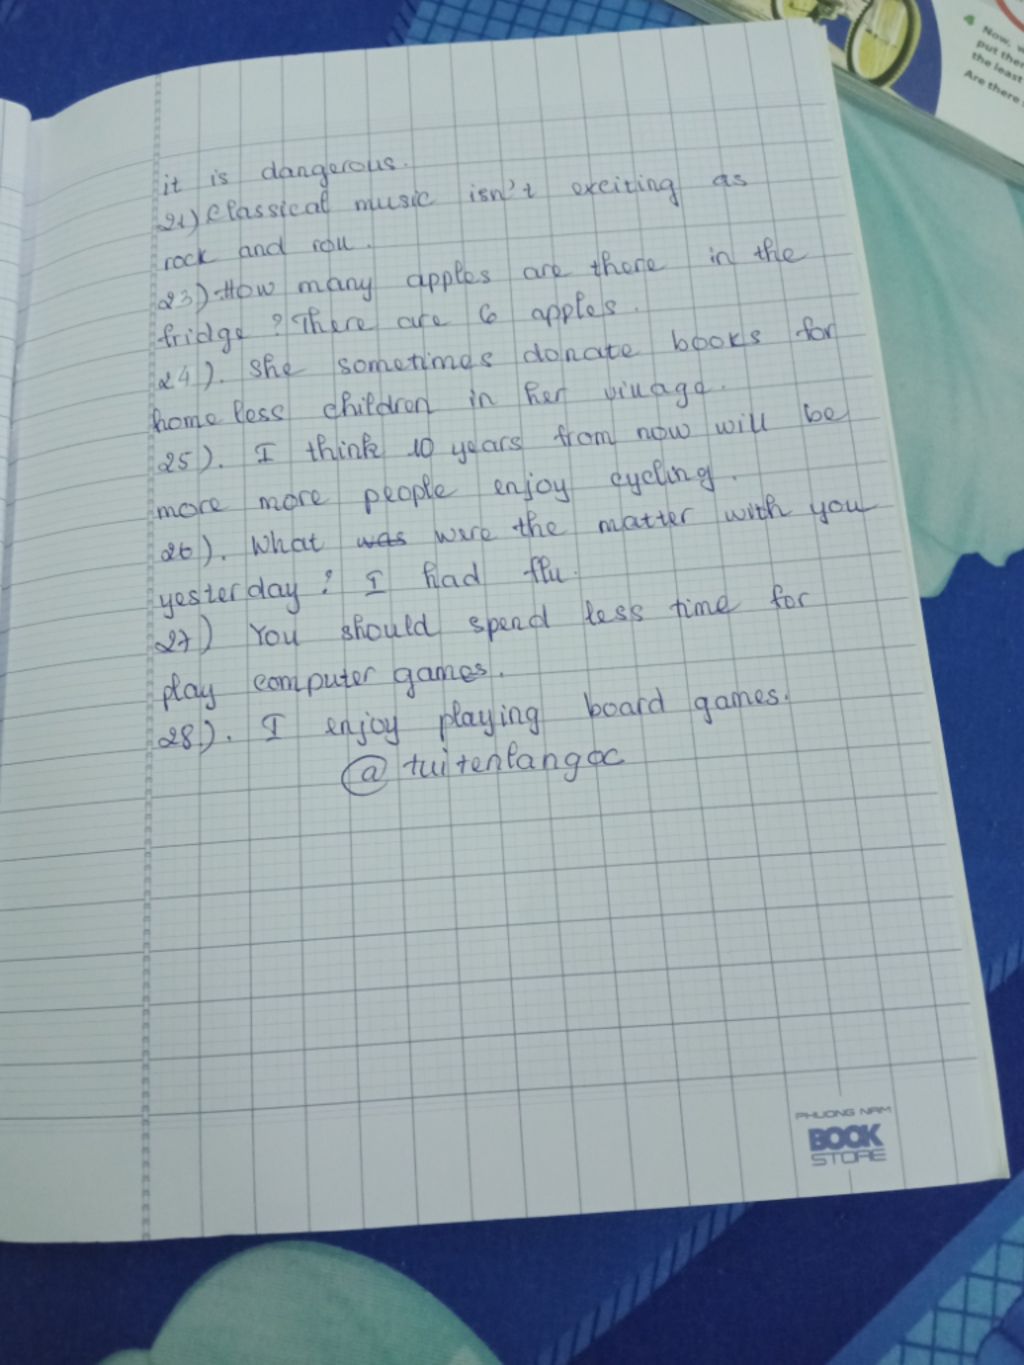 it is dangerous.
21) Classical music isn't exciting as
rock and roll.
23) How many apples are there in the
fridge? There are 6 apples.
24). She sometimes donate books for
homeless children in her village.
25). I think 10 years from now will be
more more people enjoy cycling.
26). What was were the matter with you
yesterday? I had flu.
27) You should spend less time for
play computer games.
28). I enjoy playing board games.
@ tuitenlangoc
PHUONG NAM
BOOK
STORE
4 Now, w
put ther
the least
Are there